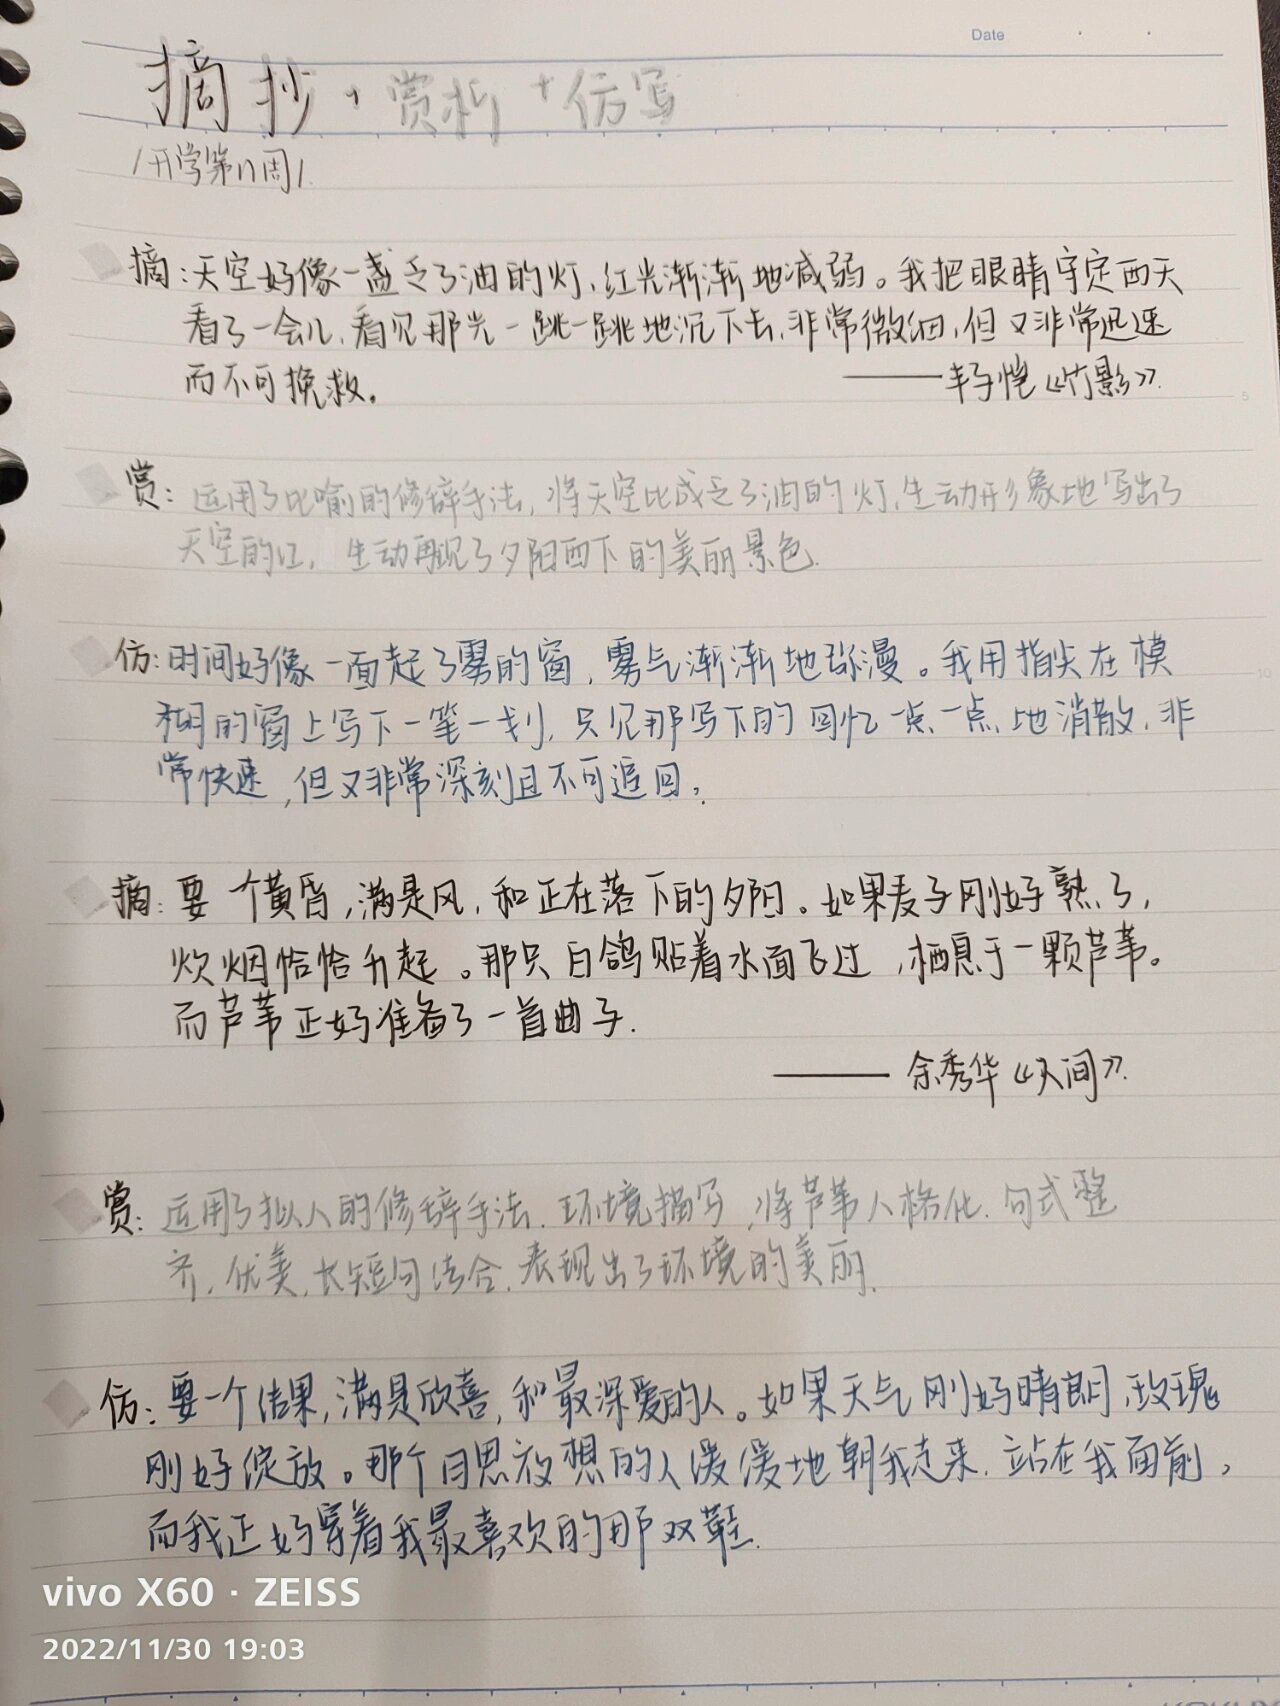 Date
摘抄+赏析+仿写
/开学第11周/
摘:天空好像一盏乏了油的灯,红光渐渐地减弱。我把眼睛守定西天
看了一会儿,看见那光一跳一跳地沉下去,非常微细,但又非常迅速
而不可挽救。
——丰子恺《竹影》.
赏:运用了比喻的修辞手法,将天空比成乏了油的灯,生动形象地写出了
天空的红,生动再现了夕阳西下的美丽景色.
仿:时间好像一面起了雾的窗,雾气渐渐地弥漫。我用指尖在模
糊的窗上写下一笔一划,只见那写下的回忆一点一点地消散,非
常快速,但又非常深刻且不可追回。
摘:要一个黄昏,满是风,和正在落下的夕阳。如果麦子刚好熟了,
炊烟恰恰升起。那只白鸽贴着水面飞过,栖息于一颗芦苇。
而芦苇正好准备了一首曲子.
——余秀华《人间》.
赏:运用了拟人的修辞手法.环境描写,将芦苇人格化.句式整
齐,优美,长短句结合,表现出了环境的美丽.
仿:要一个结果,满是欣喜,和最深爱的人。如果天气刚好晴朗,玫瑰
刚好绽放。那个日思夜想的人缓缓地朝我走来,站在我面前,
而我正好穿着我最喜欢的那双鞋.
vivo X60 · ZEISS
2022/11/30 19:03